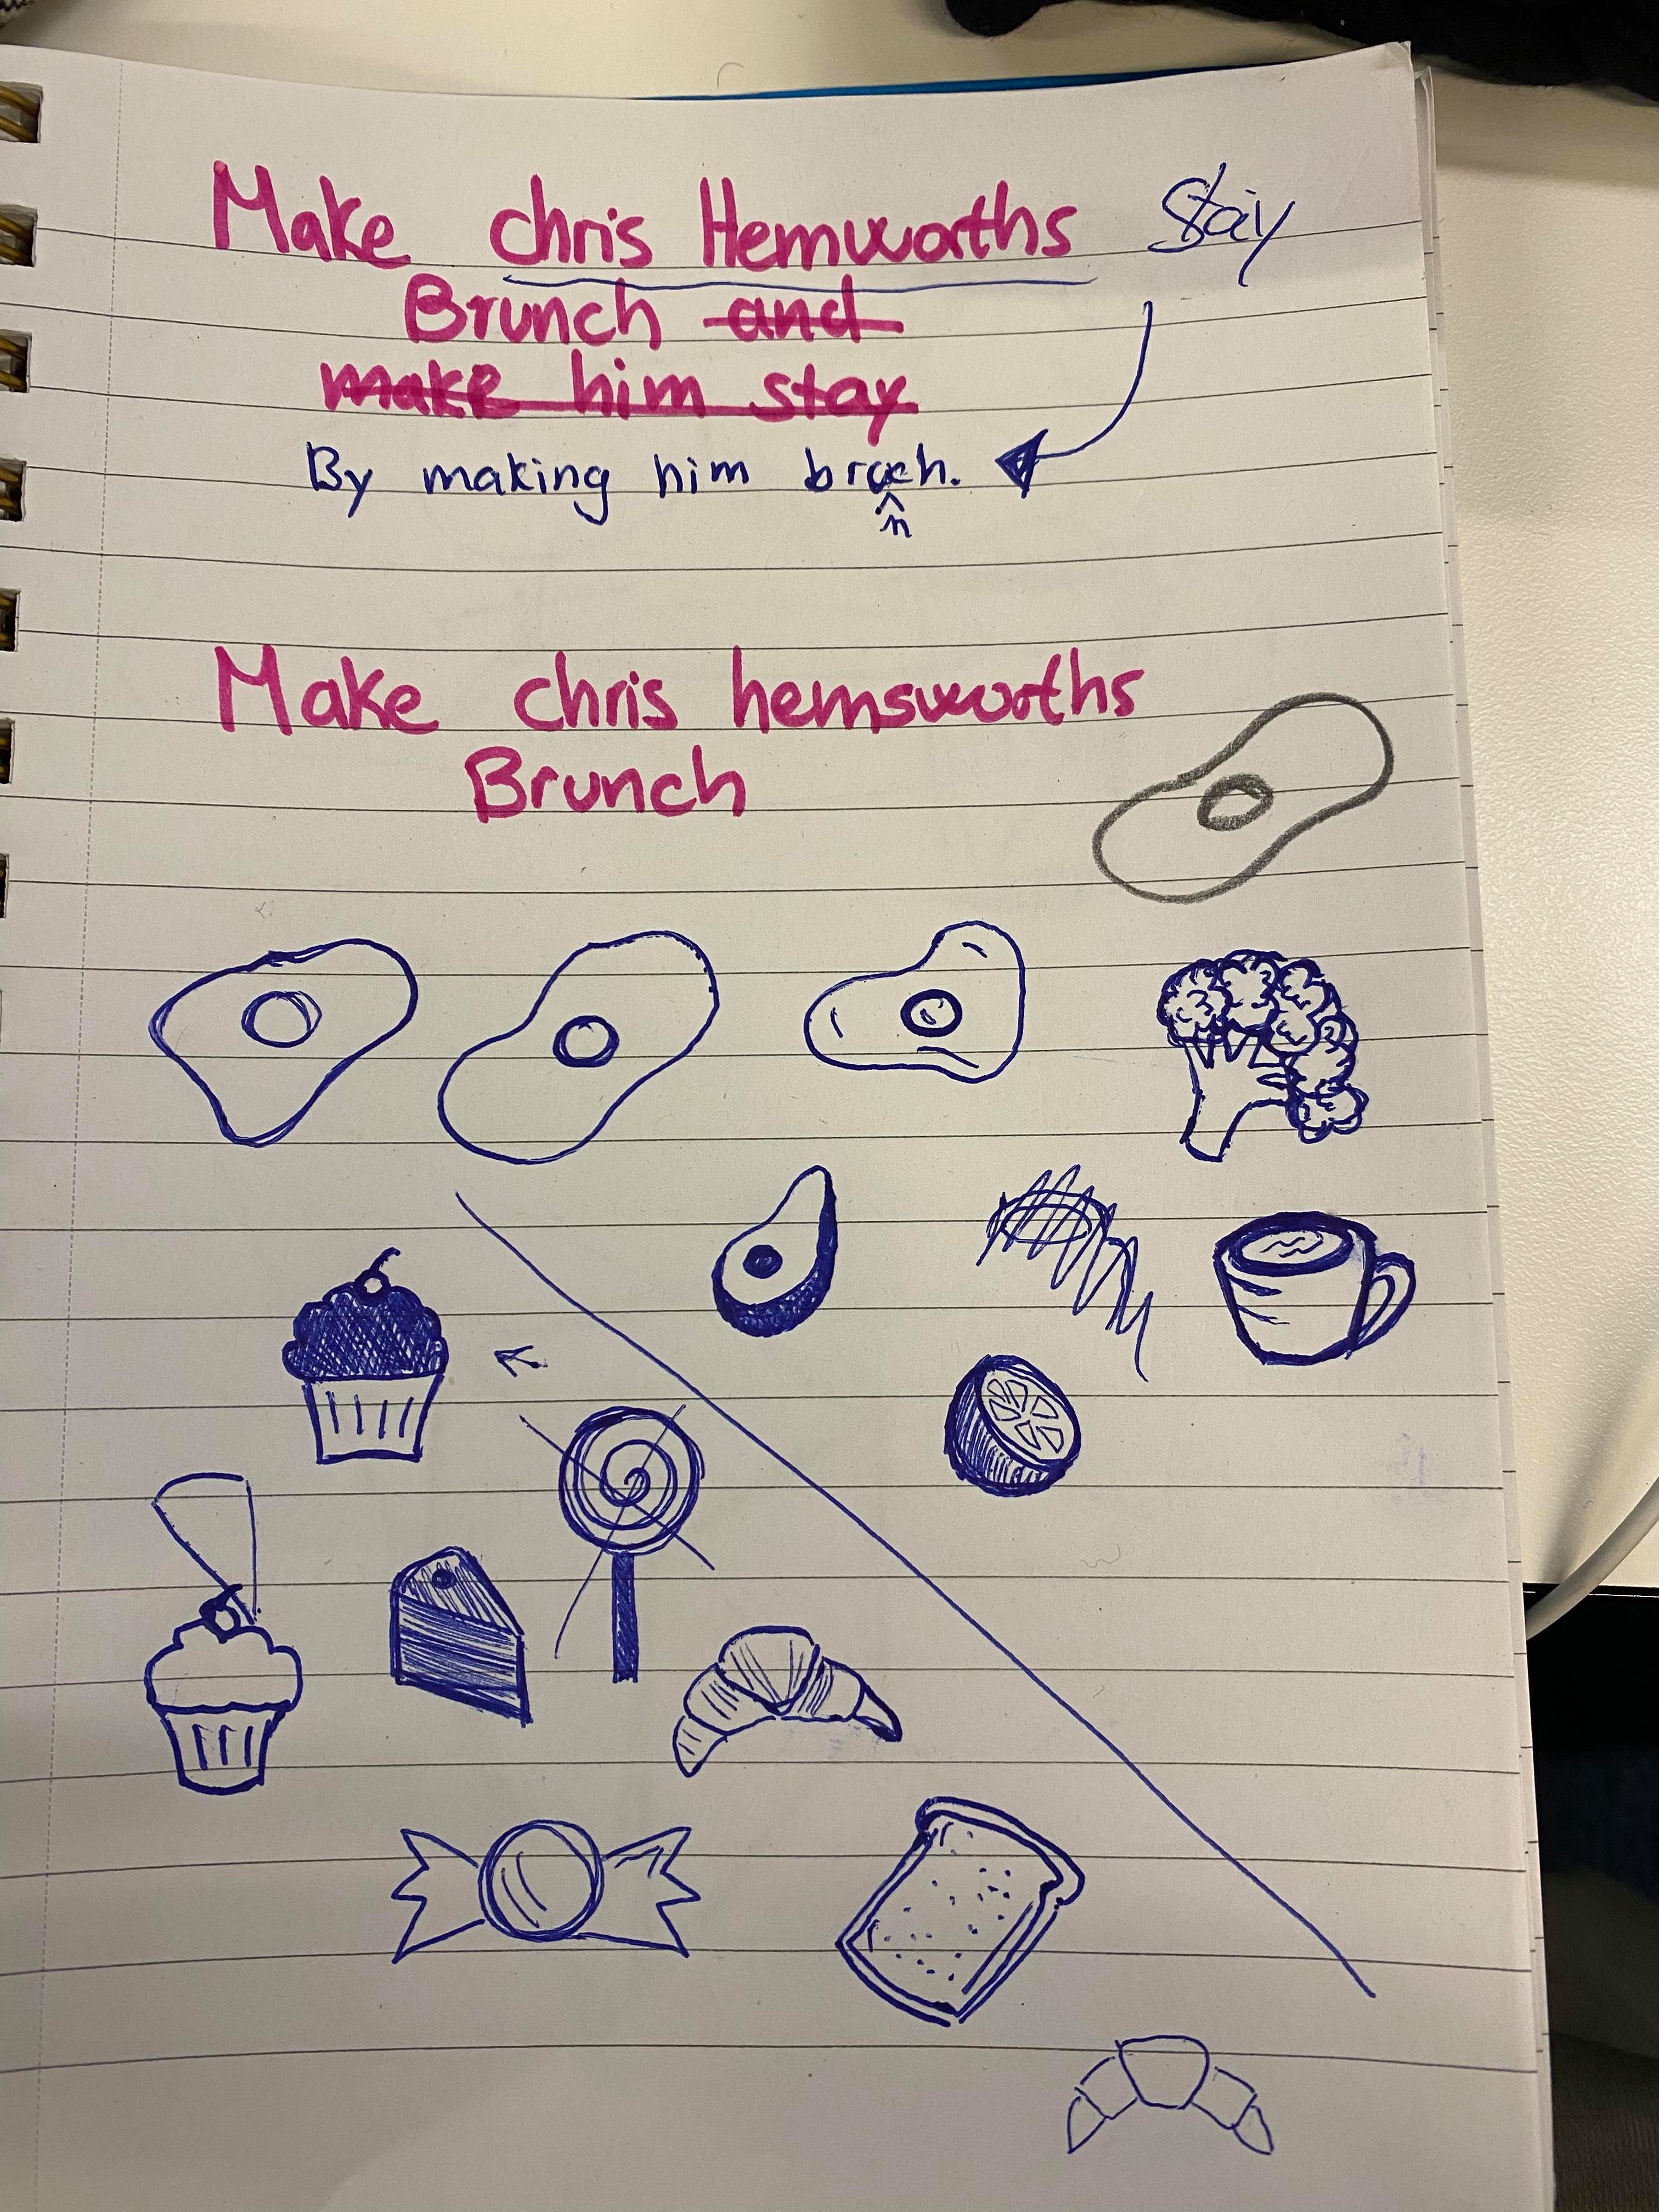 Make chris Hemworths Stay
Brunch and
make him stay
By making him bruch.
n
Make chris hemsworths
Brunch